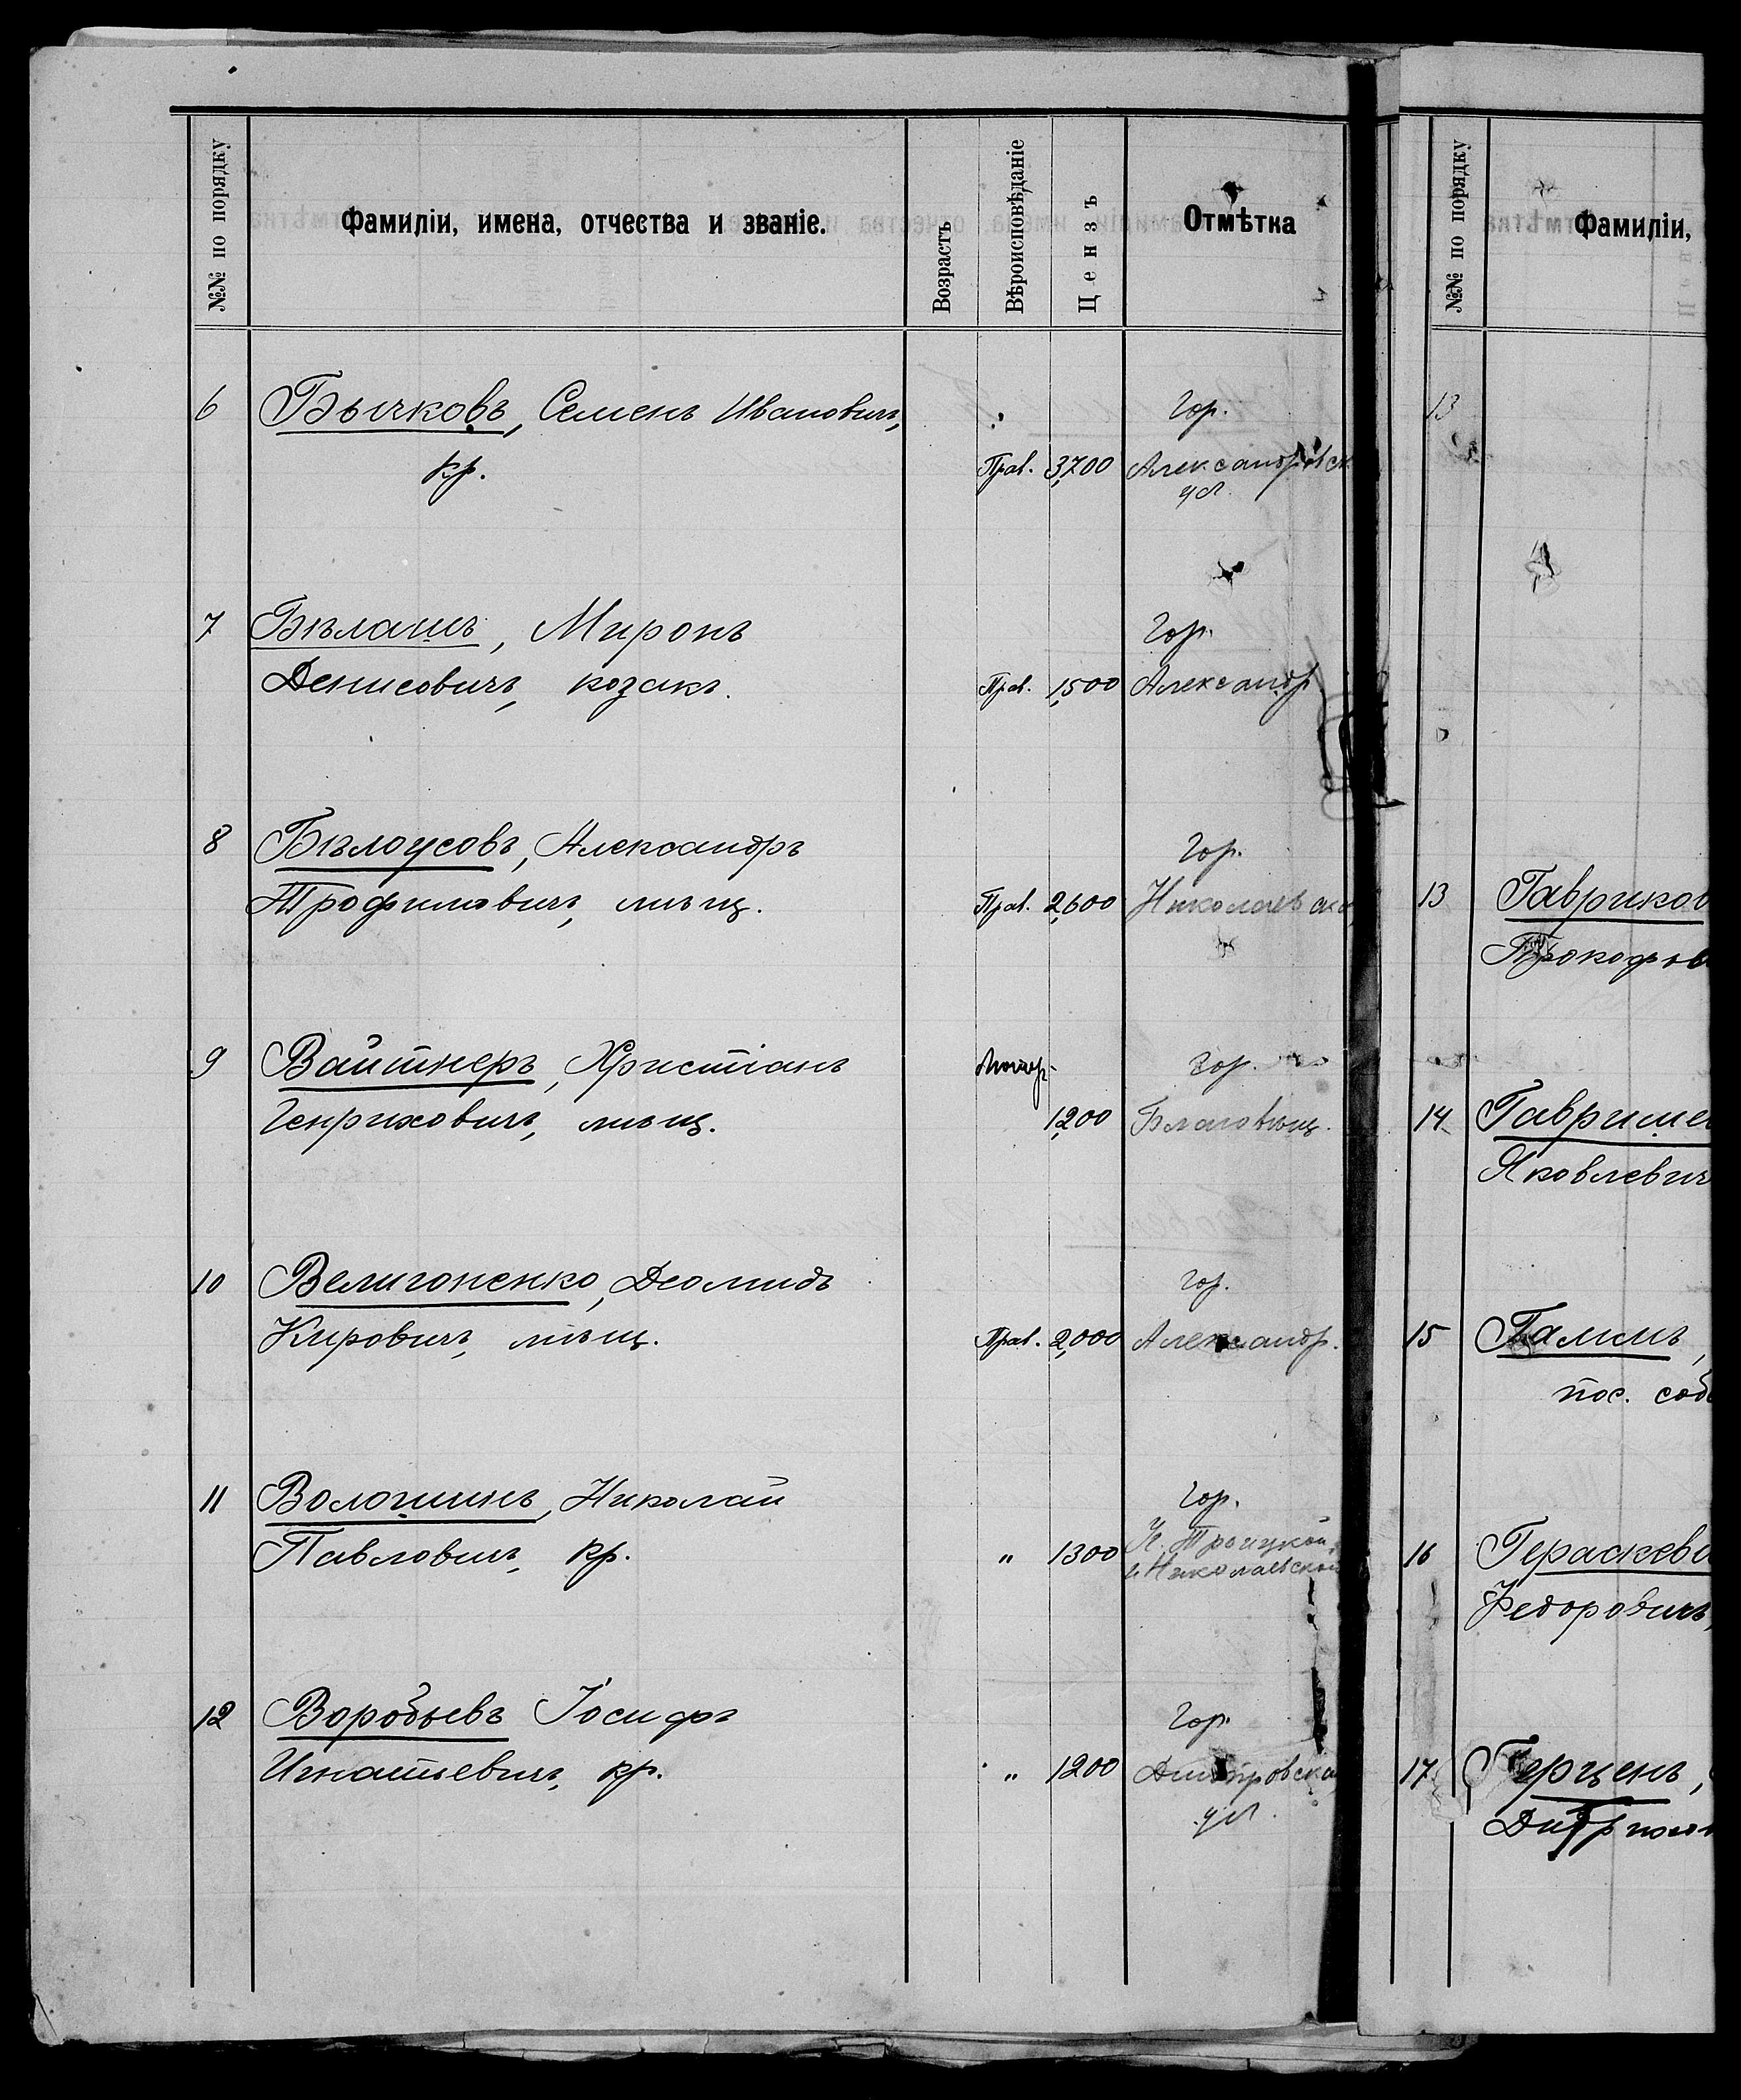 №№ по порядку
Фамиліи, имена, отчества и званіе.
Возрастъ
Вѣроисповѣданіе
Цензъ
Отмѣтка
6 Бычковъ, Семенъ Ивановичъ, Гор.
кр. Прав. 3,700 Александровск.
ул.
7 Бѣлашъ, Миронъ Гор.
Денисовичъ, козакъ. Прав. 1,500 Александр
8 Бѣлоусовъ, Александръ Гор.
Трофимовичъ, мѣщ. Прав. 2,600 Николаевская
9 Вайтнеръ, Христіанъ Лютер. Гор.
Генриховичъ, мѣщ. 1,200 Благовѣщ.
10 Велигоненко, Деомидъ Гор.
Кировичъ, мѣщ. Прав. 2,000 Александр.
11 Волошинъ, Николай Гор.
Павловичъ, кр. " 1300 Троицкой
и Николаевской
12 Воробьевъ Іосифъ Гор.
Игнатьевичъ, кр. " 1200
ул.
№№ по порядку
Фамиліи,
13
13 Гавриков
Прокофьев
14 Гаврише
Яковлевич
15
пос. соб
16 Гераскев
Федоровичъ,
17 Герценъ,